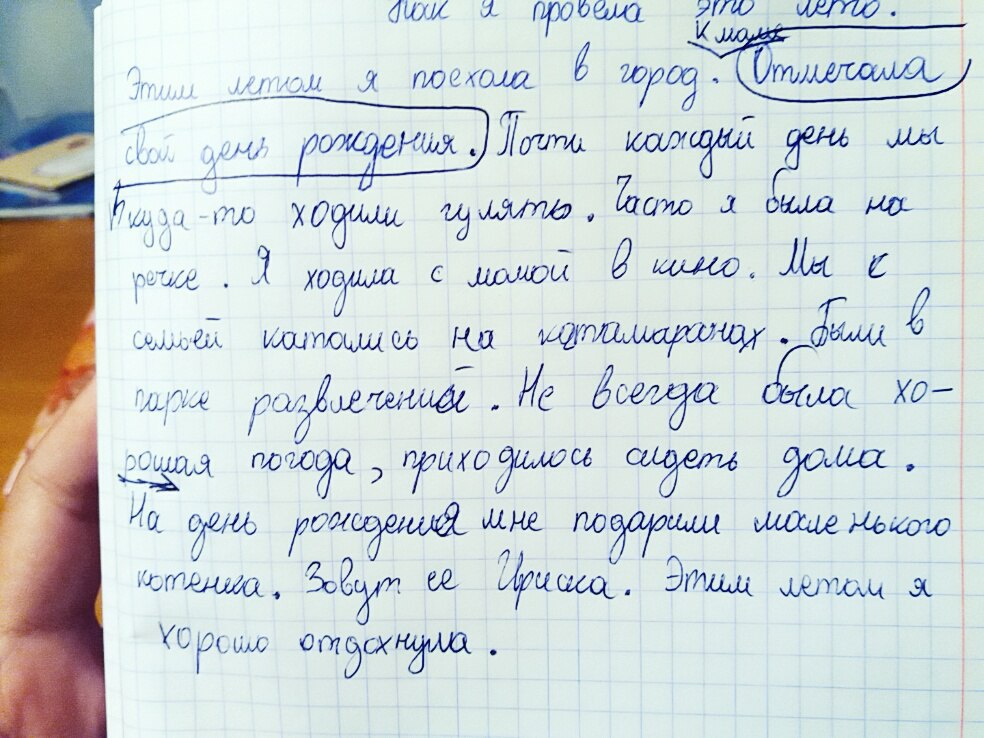 Как я провела это лето.
к маме
Этим летом я поехала в город. Отмечала
свой день рождения. Почти каждый день мы
куда-то ходили гулять. Часто я была на
речке. Я ходила с мамой в кино. Мы с
семьей катались на катамаранах. Были в
парке развлечений. Не всегда была хо-
рошая погода, приходилось сидеть дома.
На день рождения мне подарили маленького
котенка. Зовут ее Ириска. Этим летом я
хорошо отдохнула.